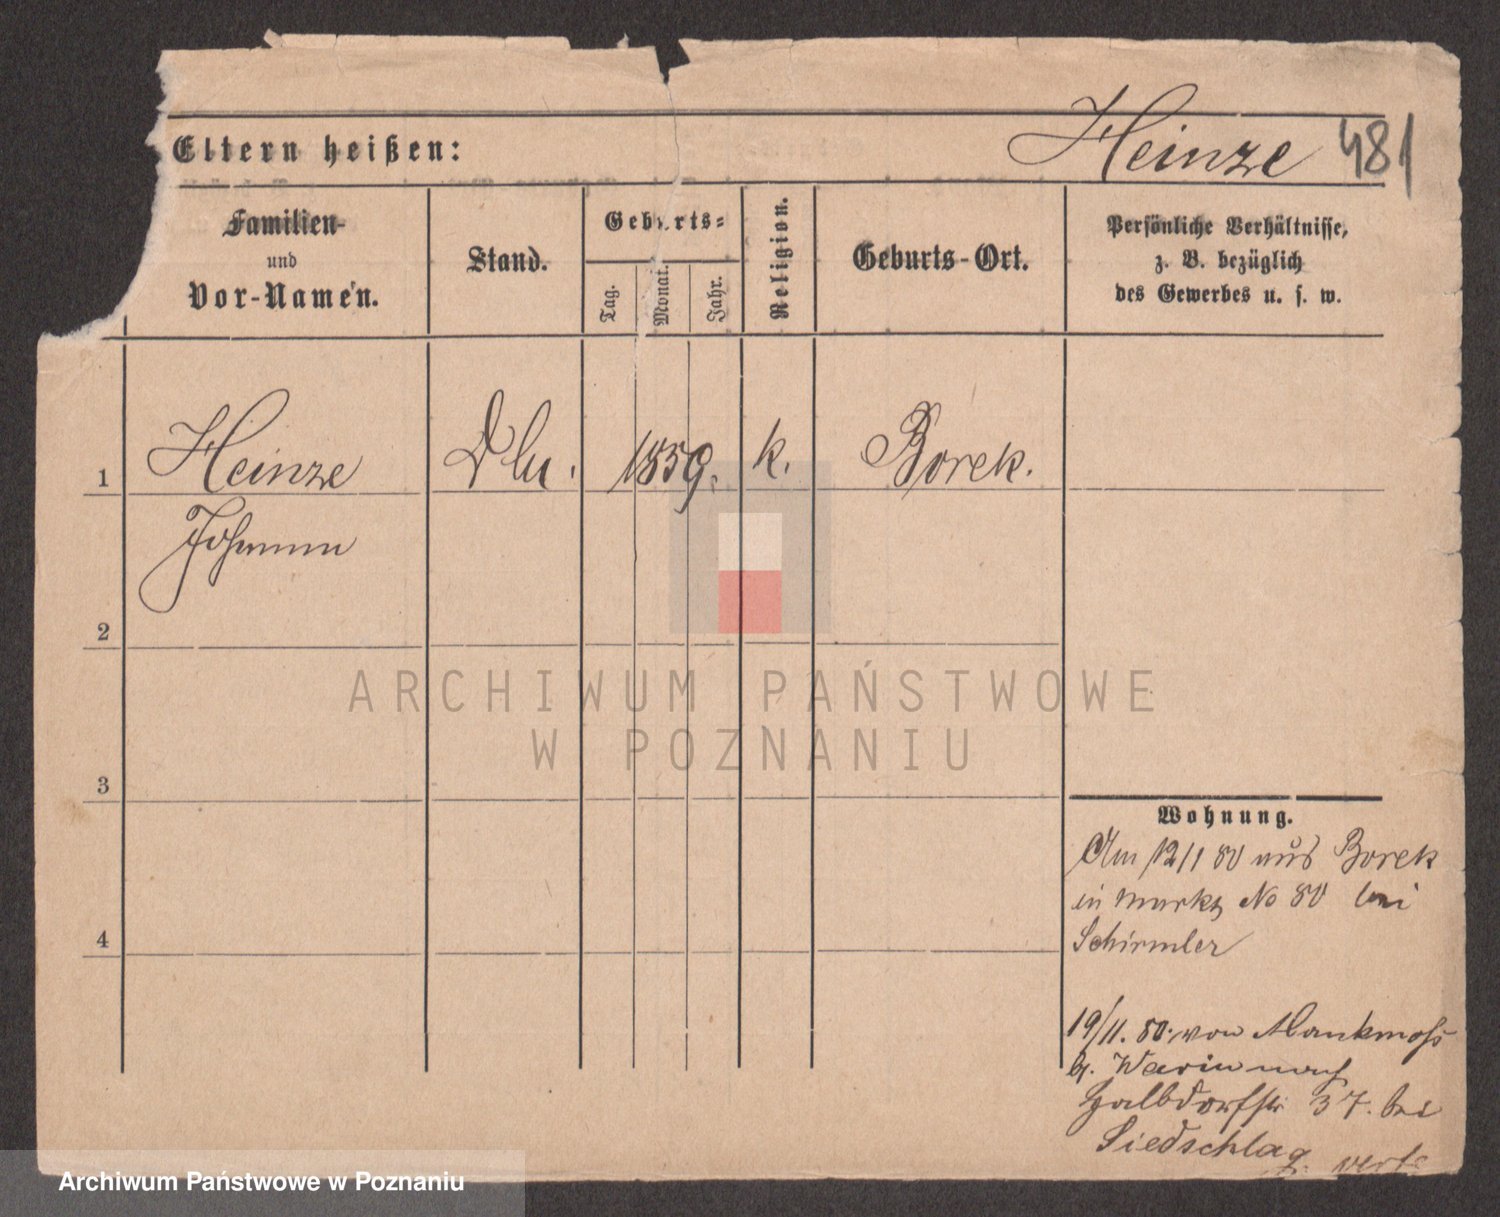 Eltern heißen:
Heinze 481
Familien-
und
Vor-Namen.
Stand.
Geburts-
Tag.
Monat.
Jahr.
Religion.
Geburts-Ort.
Persönliche Verhältnisse,
z. B. bezüglich
des Gewerbes u. s. w.
1
Heinze
1859.
k.
Borek.
Johann
2
ARCHIWUM PAŃSTWOWE
W POZNANIU
3
Wohnung.
Am 12/1 80 aus Borek
in Markt No 80 bei
Schirmler
4
19/11. 80. von
b. Warin nach
Halbdorfstr 37. bei
Siedschlag
Archiwum Państwowe w Poznaniu